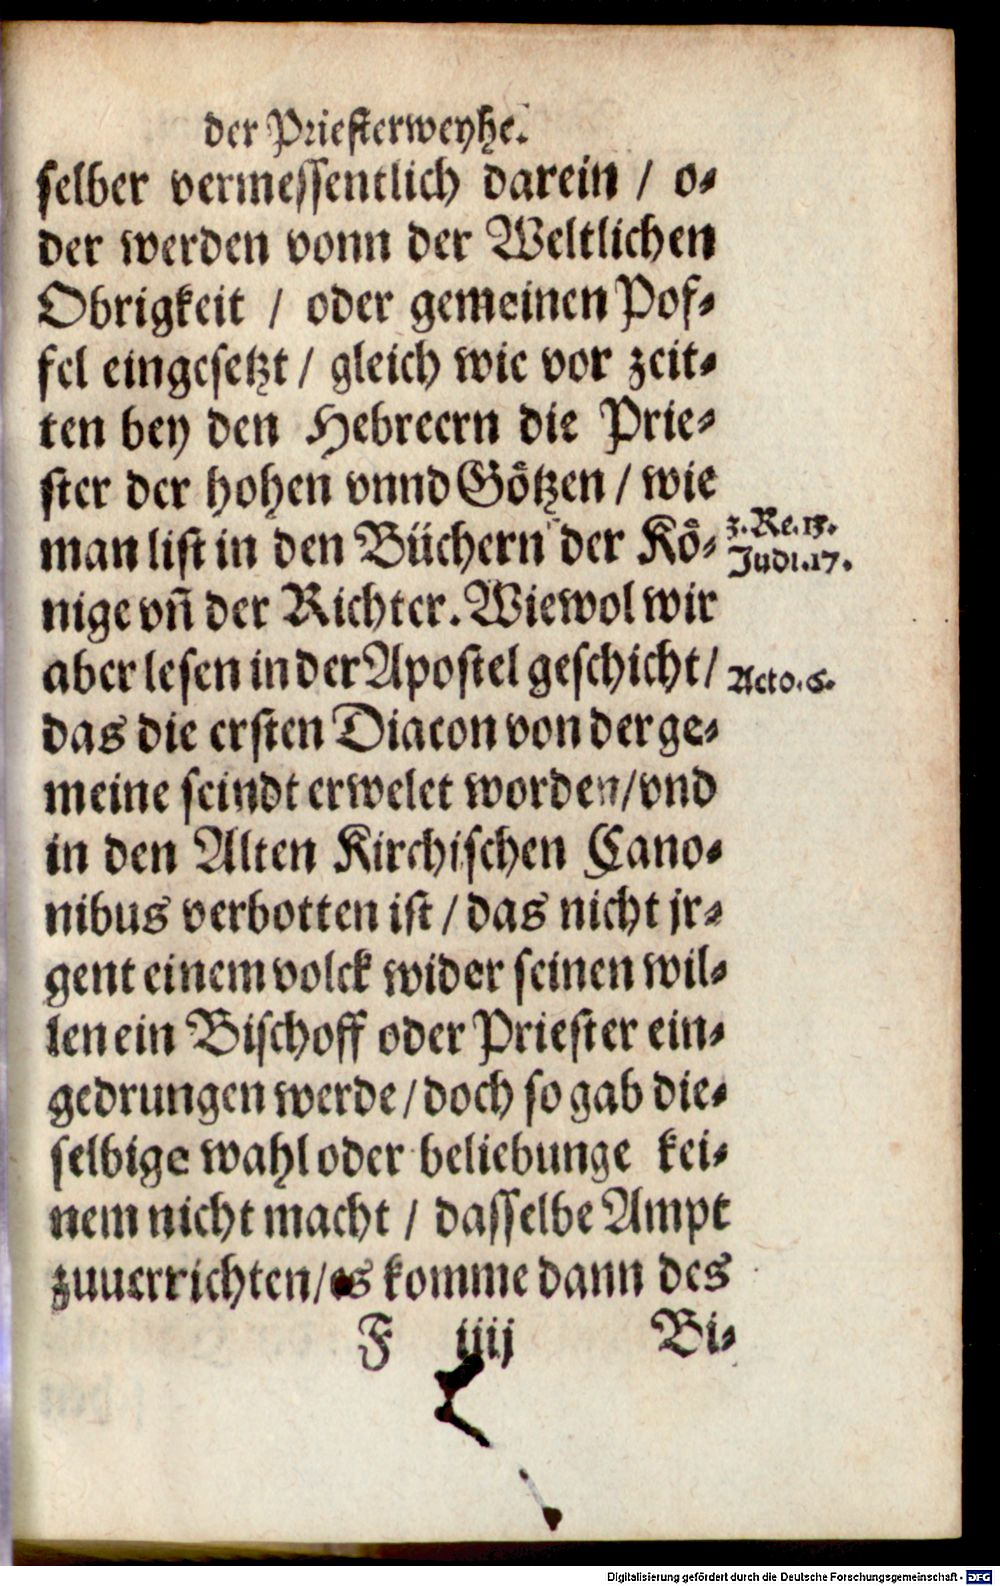 der Priesterweyhe.
selber vermessentlich darein / o-
der werden vonn der Weltlichen
Obrigkeit / oder gemeinen Pof-
fel eingesetzt / gleich wie vor zeit-
ten bey den Hebreern die Prie-
ster der hohen vnnd Götzen / wie
man list in den Büchern der Kö-
3. Re. 13.
Judi. 17.
nige vñ der Richter. Wiewol wir
aber lesen in der Apostel geschicht /
Acto. 6.
das die ersten Diacon von der ge-
meine seindt erwelet worden / vnd
in den Alten Kirchischen Cano-
nibus verbotten ist / das nicht jr-
gent einem volck wider seinen wil-
len ein Bischoff oder Priester ein-
gedrungen werde / doch so gab die-
selbige wahl oder beliebunge kei-
nem nicht macht / dasselbe Ampt
zuuerrichten / es komme dann des
F iiij Bi-
Digitalisierung gefördert durch die Deutsche Forschungsgemeinschaft - DFG